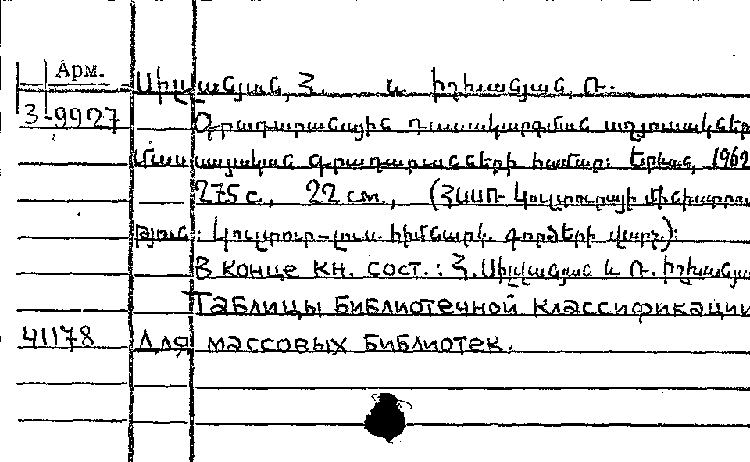 Арм.
Սիլվանյան, Հ. և Իշխանյան, Ռ.
3-9927
Գրադարանային դասակարգման աղյուսակներ
Մասսայական գրադարանների համար: Երևան, 1962
275 с., 22 см., (ՀՍՍՌ Կուլտուրայի մինիստրու
թյուն: Կուլտուր-լուս. հիմնարկ. գործերի վարչ.):
В конце кн. сост.: Հ. Սիլվանյան և Ռ. Իշխանյա
Таблицы библиотечной классификации
41178 для массовых библиотек.